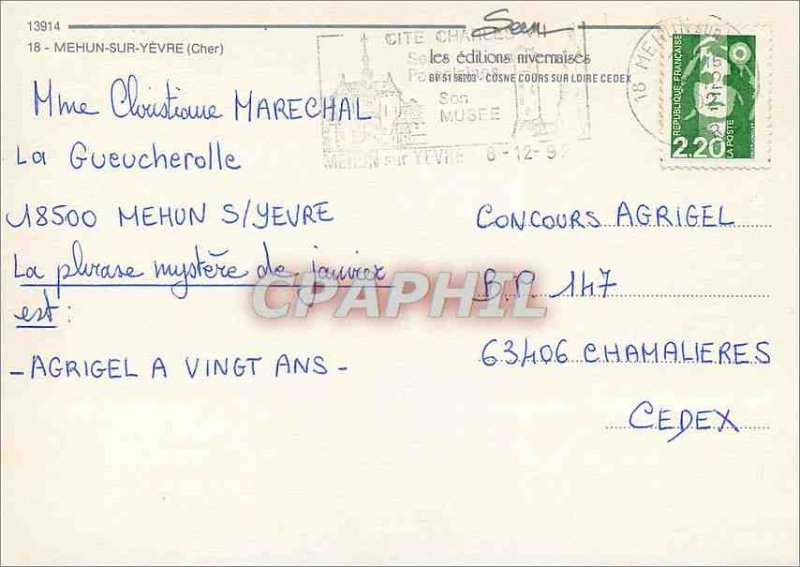 13914
18 - MEHUN-SUR-YÈVRE (Cher)
CITE CHARLES
les éditions nivernaises
BP 5156203 - COSNE COURS SUR LOIRE CEDEX
Son
MUSEE
MEHUN sur YEVRE 8-12-9
18 MEHUN SUR
REPUBLIQUE FRANÇAISE
2,20
LA POSTE
Mme Christiane MARECHAL
La Gueucherolle
18500 MEHUN S/YEVRE
La phrase mystère de janvier
est :
- AGRIGEL A VINGT ANS -
CONCOURS AGRIGEL
B.P 147
63406 CHAMALIERES
CEDEX
CPAPHIL